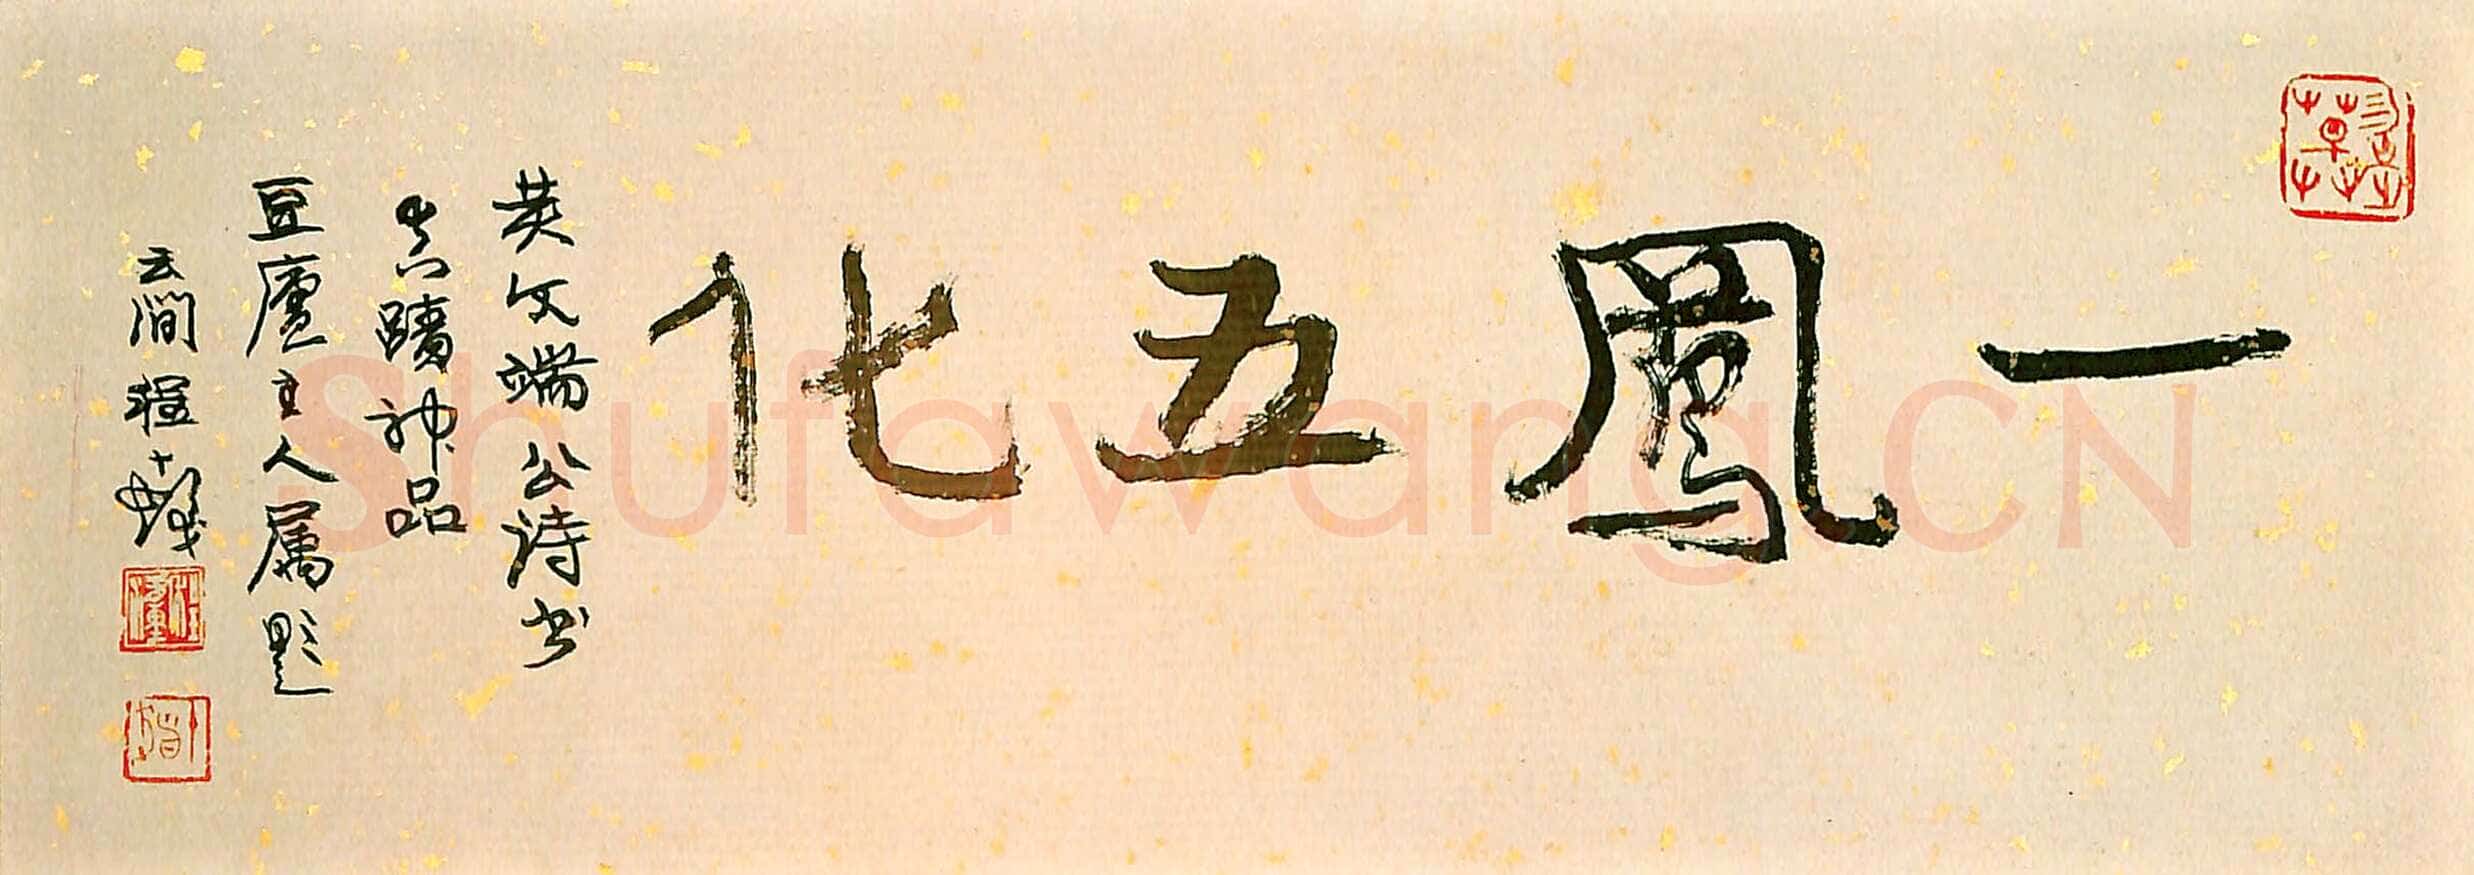 一鳳五化
文端公诗书
真蹟神品
豆廬主人属题
云間程十髮
Shufawang.CN